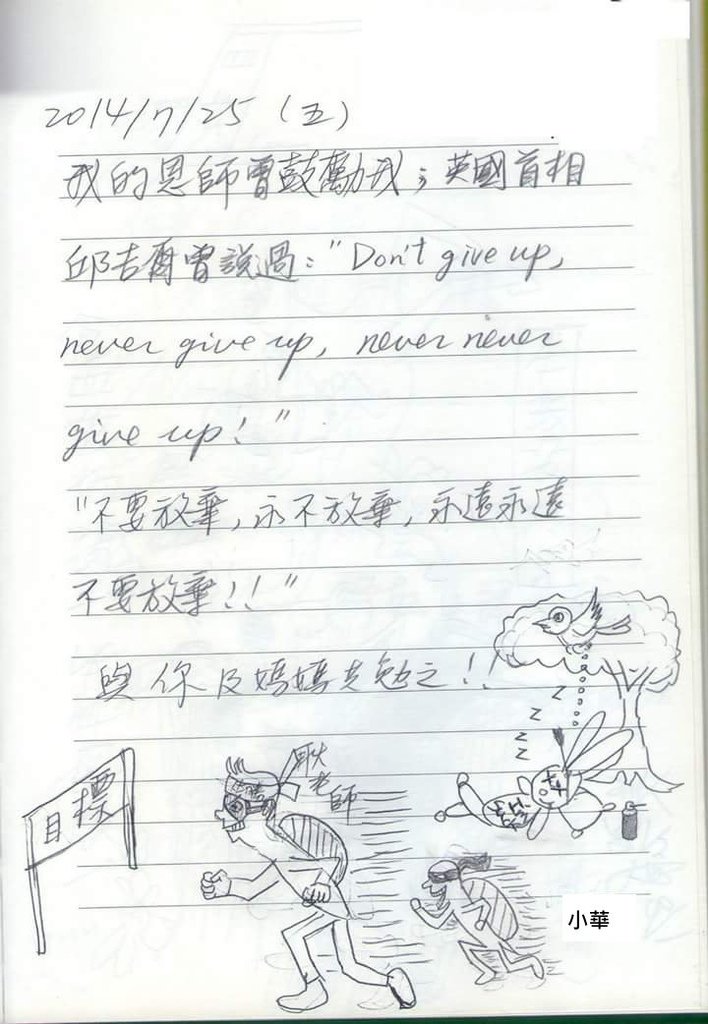 2014/7/25 (五)
我的恩師曾鼓勵我；英國首相
邱吉爾曾說過："Don't give up,
never give up, never never
give up!"
"不要放棄,永不放棄,永遠永遠
不要放棄!!"
與你及媽媽共勉之!!
z
z
z
z
目標
耿老師
小華